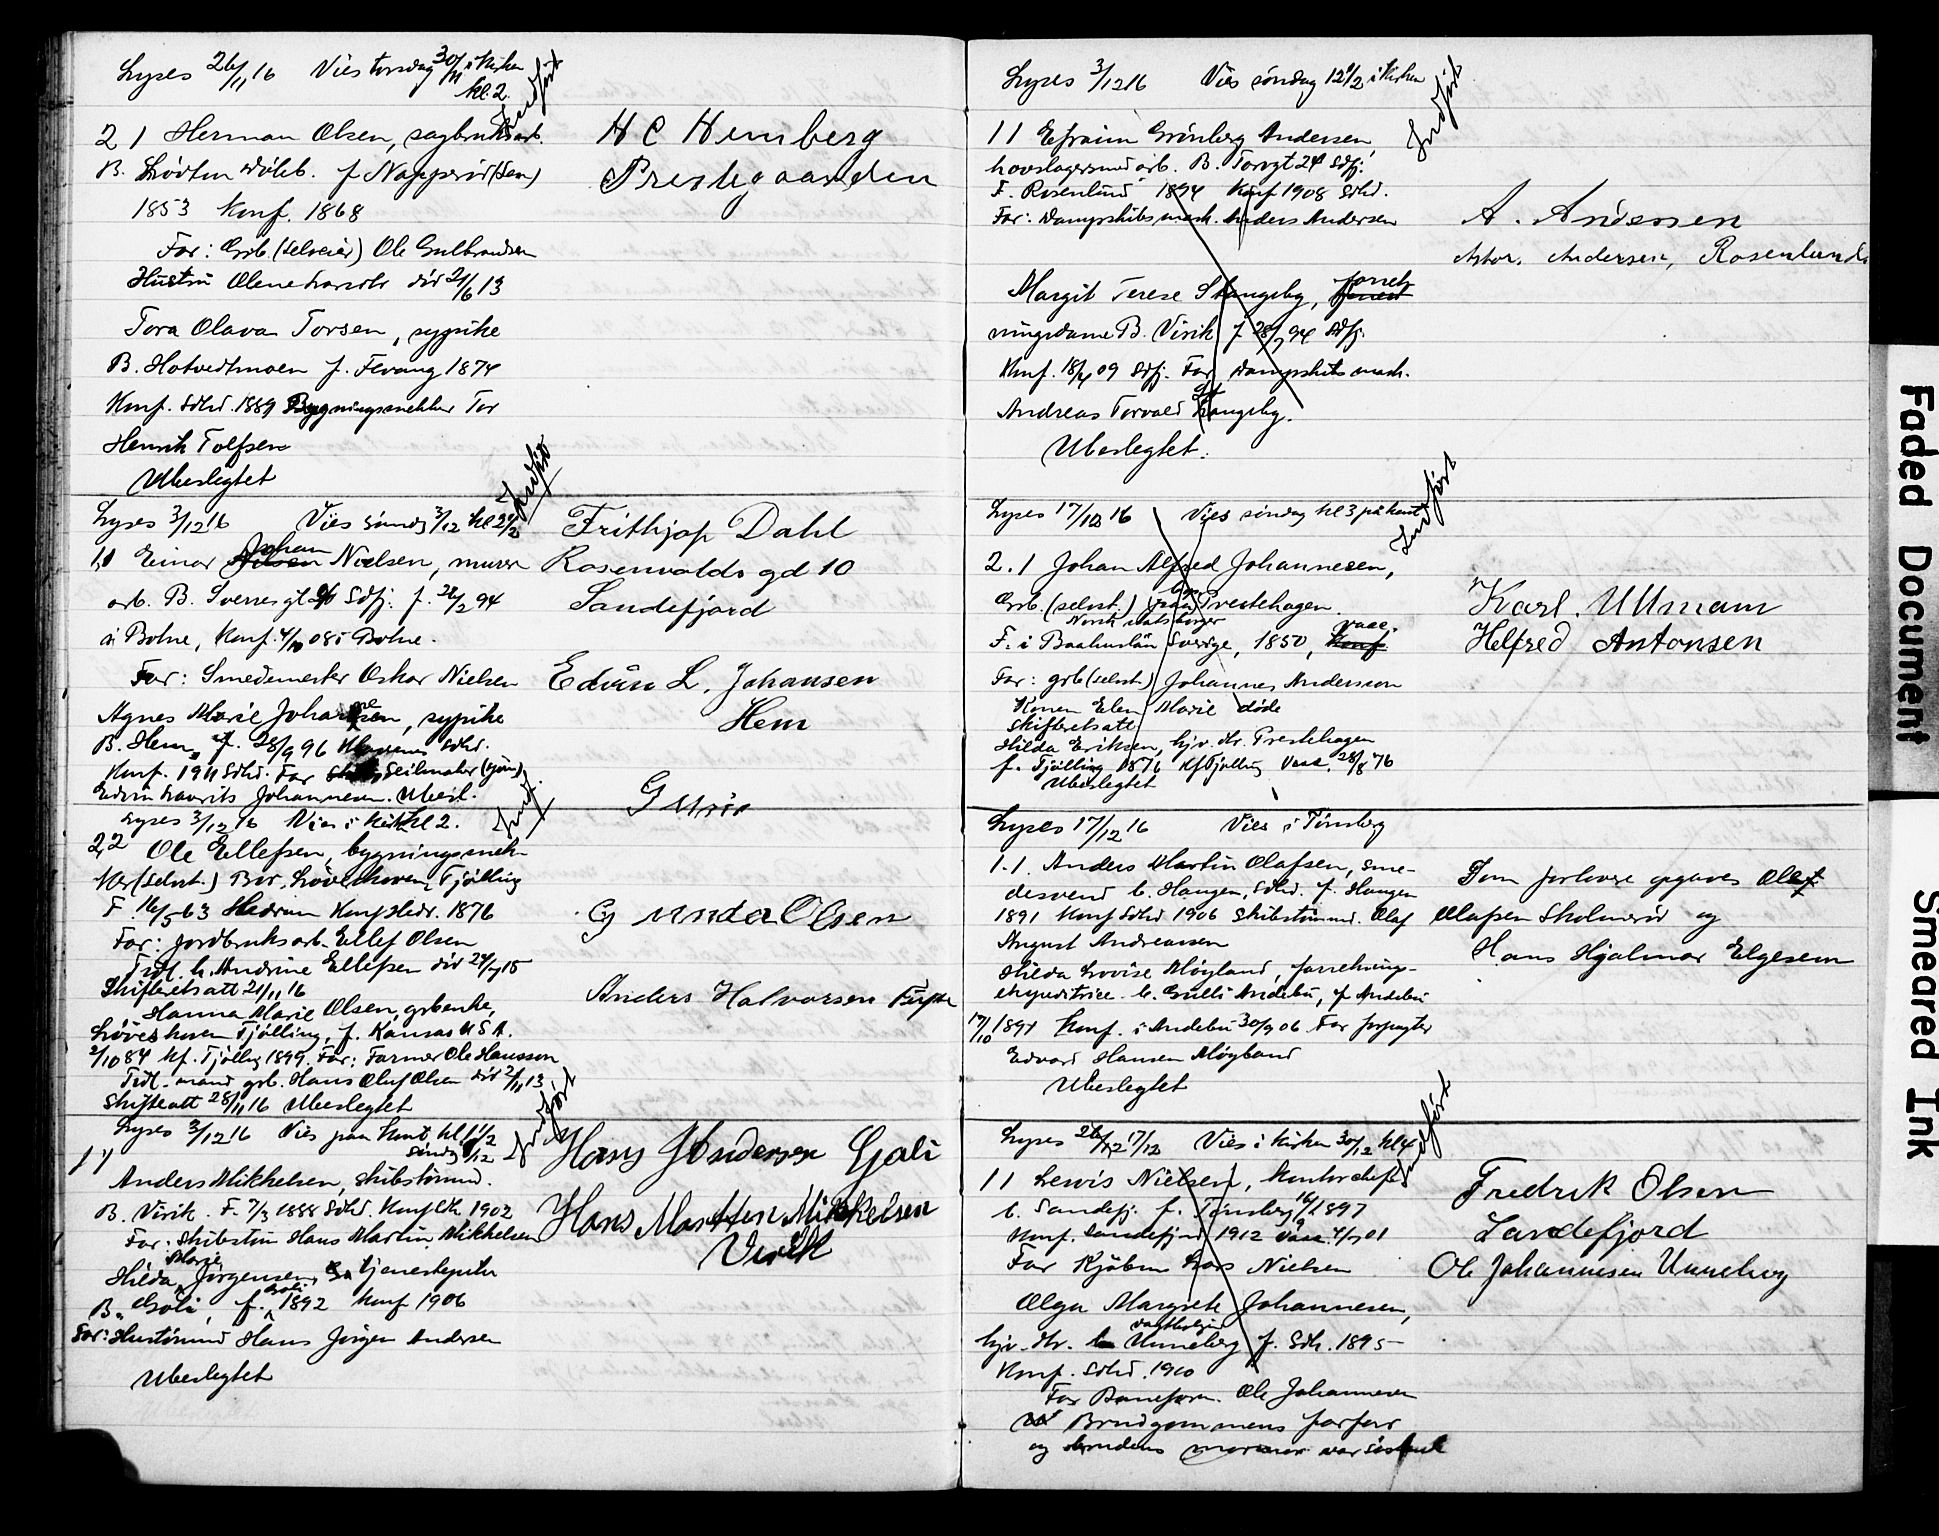 Lyses 26/11 16 Vies torsdag 30/11 i kirken
kl. 2.
Indført
2 1 Herman Olsen, sagbruksarb.
B. Løvtun f Napperød (Sem)
1853 Konf. 1868
Far: Grb. (selveier) Ole Gulbrandsen
Hustru Olene død 21/6 13
Tora Olava Torsen, sypike
B. Hotvedtmoen f. Fevang 1874
Konf. Sdhd. 1889 Bygningssnekker Tor
Henrik Tolfsen
Ubeslegtet
H C Hemberg
Prestegaarden
Lyses 3/12 16 Vies søndag 3/12 kl 2 1/2
Indført
1,1 Einar Johan Nielsen, murer
arb. B. Sverresgt Sdfj: f. 26/2 94
i Botne, Konf. 4/10 08 i Botne.
Far: Smedemester Oskar Nielsen
Agnes Marie Johannesen, sypike
B. Hem, f. 28/9 96 Sdhd.
Konf. 1911 Sdhd. Far Seilmaker
Edvin Laurits Johannesen. Ubesl.
Frithjop Dahl
Rosenvolds gd 10
Sandefjord
Edvin L. Johansen
Hem
Lyses 3/12 16 Vies i Kirk kl 2.
Indf.
2,2 Ole Ellefsen, bygningssnek-
ker (selvst.) Bor. Løveskoven, Tjølling
F 16/5 63 Hedrum Konf Hedr. 1876
Far: jordbruksarb. Ellef Olsen
Tidl. h. Andrine Ellefsen død 24/7 15
Skifteretsatt 21/11 16
Hanna Marie Olsen, grbenke,
Løveskoven Tjølling, f. Kansas U S A.
2/10 84 Kf. Tjølling 1899. Far: Farmer Ole Hansson
Tidl. mand grb. Hans Oluf Olsen død 2/11 13
Skifteatt 28/11 16 Ubeslegtet
Gunda Olsen
Anders Halvorsen
Lyses 3/12 16 Vies paa Kont. kl 1 1/2
Indført
1 1
Anders Mikkelsen, skibstømmd.
B. Virik. F. 7/3 1888 Sdhd. Konf Sdh 1902
Far: Skibstøm Hans Martin Mikkelsen
Hilda Marie Jørgensen, tjenestepike
B. Goli, f. Goli 1892 Konf 1906
Far: Hustømmd Hans Jørgen Andersen
Ubeslegtet
Hans J Andersen Goli
Hans Martin Mikkelsen
Virik
Lyses 3/12 16 Vies søndag 12 1/2 i Kirken
Indført
1 1 Efraim Grönberg Andersen,
hovslagersmedarb. B. Torvgt 24 Sdfj.
F. Rosenlund 1894 Konf 1908 Sdhd.
Far: Dampskibsmask. Anders Andersen
Margit Terese Stangeby, forret-
ningsdame B. Virik f 28/7 94 Sdfj.
Konf. 18/4 09 Sdfj. Far Dampskibsmask.
Andreas Torvald Stangeby.
Ubeslegtet.
A. Andersen
Astor. Andersen, Rosenlund.
Lyses 17/12 16 Vies søndag kl 3 på kont
Indført
2.1 Johan Alfred Johannesen,
Grb. (selvst.) Prestehagen.
Norsk statsborger
F. i Baahuslän Sverige, 1850, vacc.
Far: grb (selvst.) Johannes Andersson
Konen Elen Marie døde
Skifteretsatt
Hilda Eriksen, hjv. dtr. Prestehagen
f. Tjølling 1876 Kf Tjølling Vacc. 28/8 76
Ubeslegtet
Karl. Ullmann
Helfred Antonsen
Lyses 17/12 16 Vies i Tønsberg
1.1. Anders Martin Olafsen, sme-
desvend b. Haugen, Sdhd. f. Haugen
1891 Konf Sdhd 1906 Skibstømmd. Olaf
August Andreassen
Hilda Lovise Møyland, forretnings-
ekspeditrice. b. Gulli Andebu, f Andebu
17/10 1891 Konf. i Andebu 30/9 06 Far forpagter
Edvard Hansen Møyland
Ubeslegtet
Som forlovere opgaves Olaf
Olafsen Skolmerød og
Hans Hjalmar Elgesem
Lyses 17/12 Vies i Kirken 30/12 kl 4
Indført
1 1 Lewis Nielsen, kontorchef
b. Sandefj. f. Tønsberg 1897
Konf. Sandefjord 1912 Vacc.
Far Kjøbm Lars Nielsen
Olga Margrete Johannesen,
hjv. dtr. Unneberg f. Sdh. 1895
Konf. Sdhd. 1910
Far Baneform. Ole Johannesen
Brudgommens farfar
og brudens mormor var søskende
Fredrik Olsen
Sandefjord
Ole Johannesen Unneberg
Faded Document
Smeared Ink